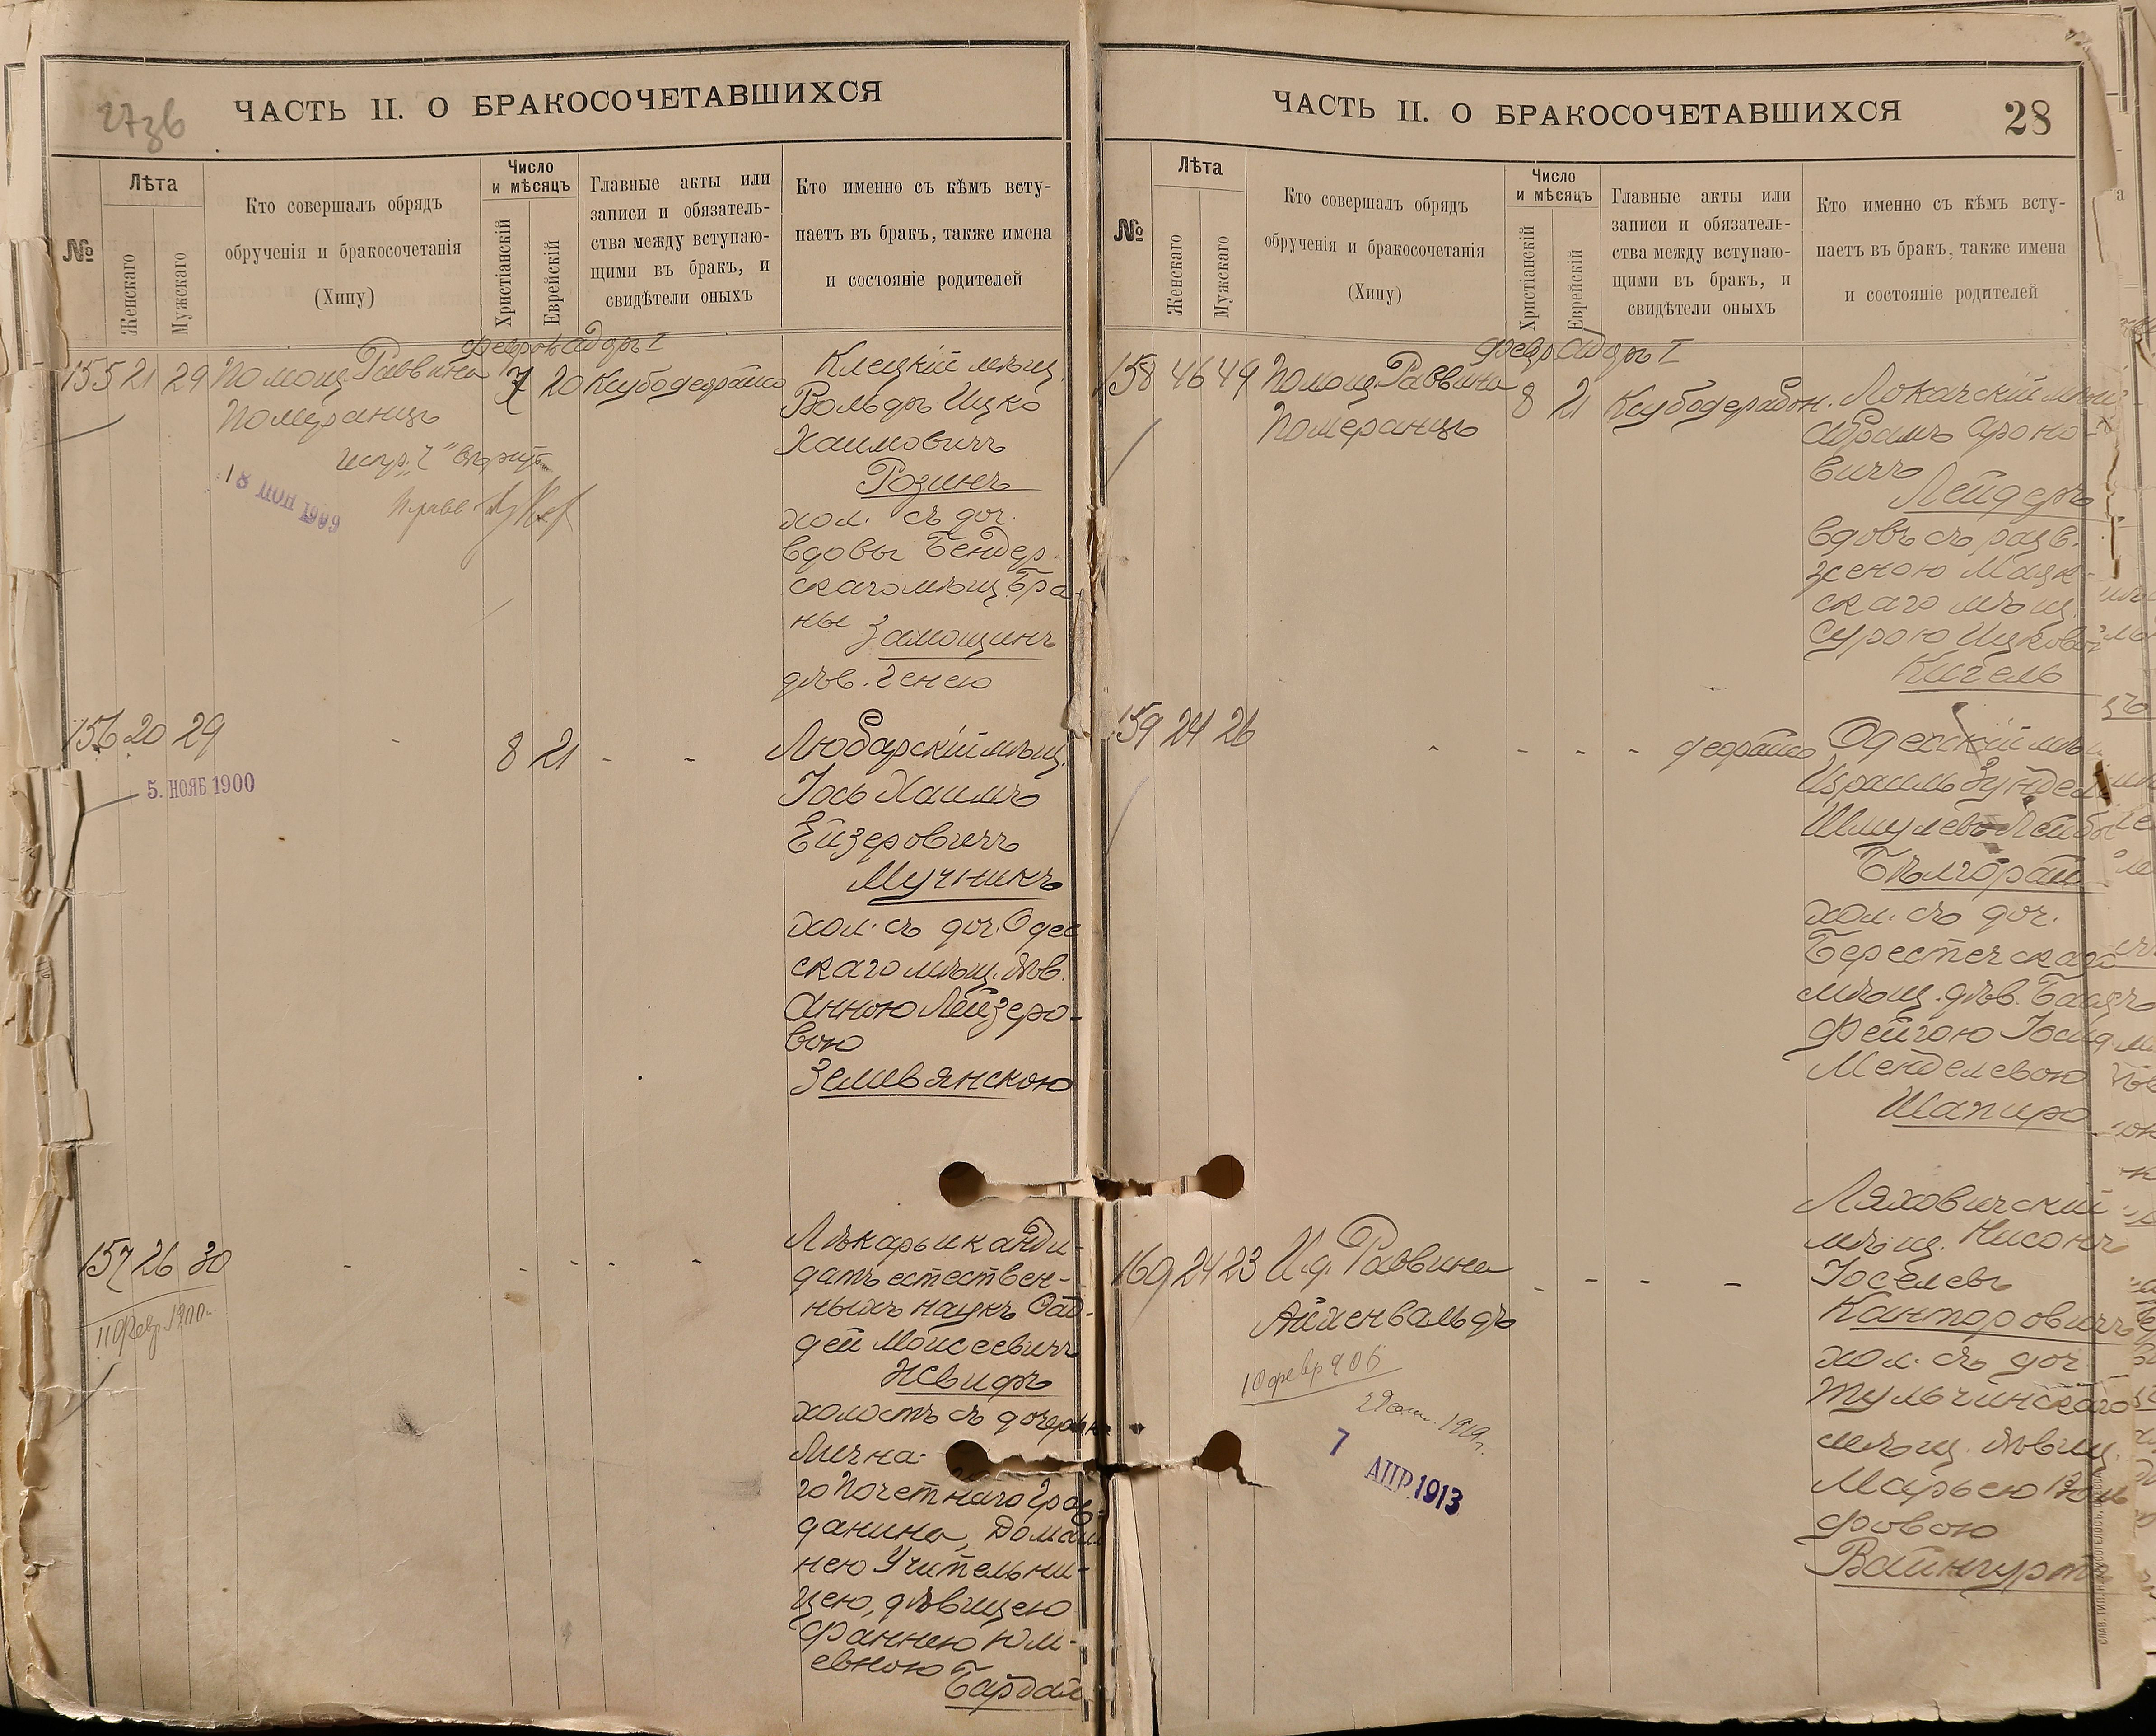 27зв
ЧАСТЬ II. О БРАКОСОЧЕТАВШИХСЯ
№
Лѣта
Женскаго
Мужскаго
Кто совершалъ обрядъ
обрученія и бракосочетанія
(Хипу)
Число
и мѣсяцъ
Христіанскій
Еврейскій
Главные акты или
записи и обязатель-
ства между вступаю-
щими въ бракъ, и
свидѣтели оныхъ
Кто именно съ кѣмъ всту-
паетъ въ бракъ, также имена
и состояніе родителей
Адаръ I
155 21 29 Помощ. Раввина 7 20
Померанцъ
18 ІЮН 1909
Клецкій мѣщ.
Вольфъ Ицко
Хаимовичъ
Розинъ
хол. съ доч.
вдовы Бендер.
скаго мѣщ. Бра
ны Замощинъ
дѣв. Генею
156 20 29 - 8 21 - -
5. НОЯБ 1900
Любарскій мѣщ.
Іось Хаимъ
Ейзеровичъ
Мучникъ
хол. съ доч. Одес
скаго мѣщ. дѣв.
Анною Лейзеро-
вою
Земвянскою
157 26 30 - - - - -
11 февр 1900
Лѣкарь и канди-
датъ естествен-
ныхъ наукъ
дей Моисеевичъ
холостъ съ дочерью
Лична-
го Почетнаго Граж-
данина, Домаш
нею Учительни-
цею, дѣвицею
Фаннею Юлі-
евною
28
ЧАСТЬ II. О БРАКОСОЧЕТАВШИХСЯ
№
Лѣта
Женскаго
Мужскаго
Кто совершалъ обрядъ
обрученія и бракосочетанія
(Хипу)
Число
и мѣсяцъ
Христіанскій
Еврейскій
Главные акты или
записи и обязатель-
ства между вступаю-
щими въ бракъ, и
свидѣтели оныхъ
Кто именно съ кѣмъ всту-
паетъ въ бракъ, также имена
и состояніе родителей
Февр Адаръ I
158 46 49 Помощ. Раввина 8 21
Померанцъ
Локачскій мѣщ
Абрамъ Ароно-
вичъ
Лейдеръ
вдовъ съ разв.
женою
скаго мѣщ.
Сурою Ицковою
Кигель
159 24 26 - - - -
Одесскій мѣщ
Израиль Зундель
Шмулевъ Лейбов
Бѣлгорай
хол. съ доч.
Берестечскаго
мѣщ. дѣв.
Фейгою
Менделевою
Шапиро
160 24 23 И. д. Раввина - - - -
Айхенвальдъ
10 февр 906
7 АПР. 1913
Ляховичскій
мѣщ. Нисонъ
Іоселевъ
Канторовичъ
хол. съ доч.
Тульчинскаго
мѣщ. дѣвиц.
Марьею Воль
фовою
Вайнгуртъ